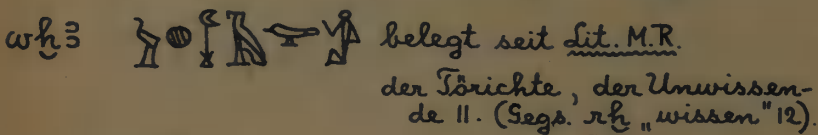 wḫꜣ 𓅱𓐍𓆼𓄿𓅪𓀁 belegt seit Lit. M.R.
der Törichte, der Unwissen-
de II. (Gegs. rḫ „wissen" 12).